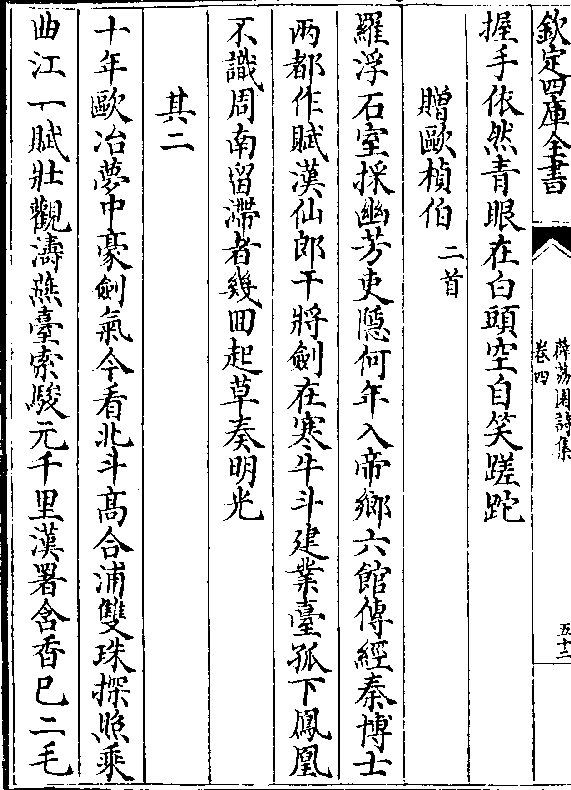 欽定四庫全書
薜荔園詩集
卷四
五十二
握手依然青眼在白頭空自笑蹉跎
贈歐楨伯二首
羅浮石室採幽芳吏隱何年入帝鄉六館傳經秦博士
兩都作賦漢仙郎干將劍在寒牛斗建業臺孤下鳳凰
不識周南留滯者幾回起草奏明光
其二
十年歐冶夢中豪劍氣今看北斗高合浦雙珠探照乘
曲江一賦壯觀濤燕臺索駿元千里漢署含香已二毛